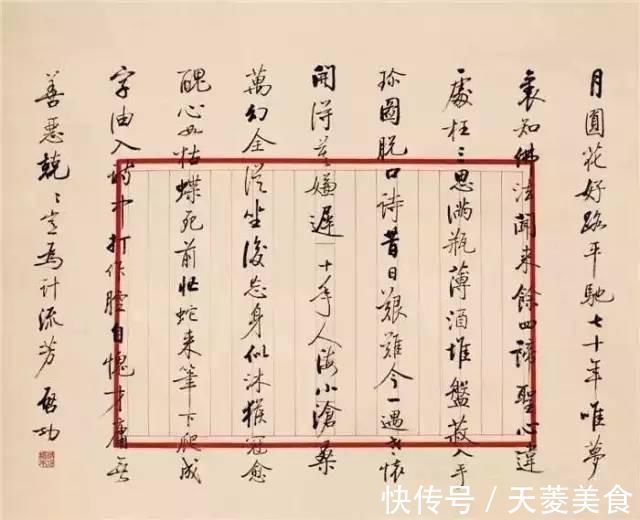 月圓花好路平馳七十年唯夢
裏知佛法聞來餘四諦聖心違
處枉三思滿瓶薄酒堆盤菽入手
珍圖脫口詩昔日艱難今一遇老懷
開得莫嫌遲 十年人海小滄桑
萬幻全從坐後忘身似沐猴冠愈
醜心如枯蝶死前忙蛇來筆下爬成
字油入詩中打作腔自愧才庸無
善惡兢〻豈為計流芳 啟功
快传号 / 天菱美食